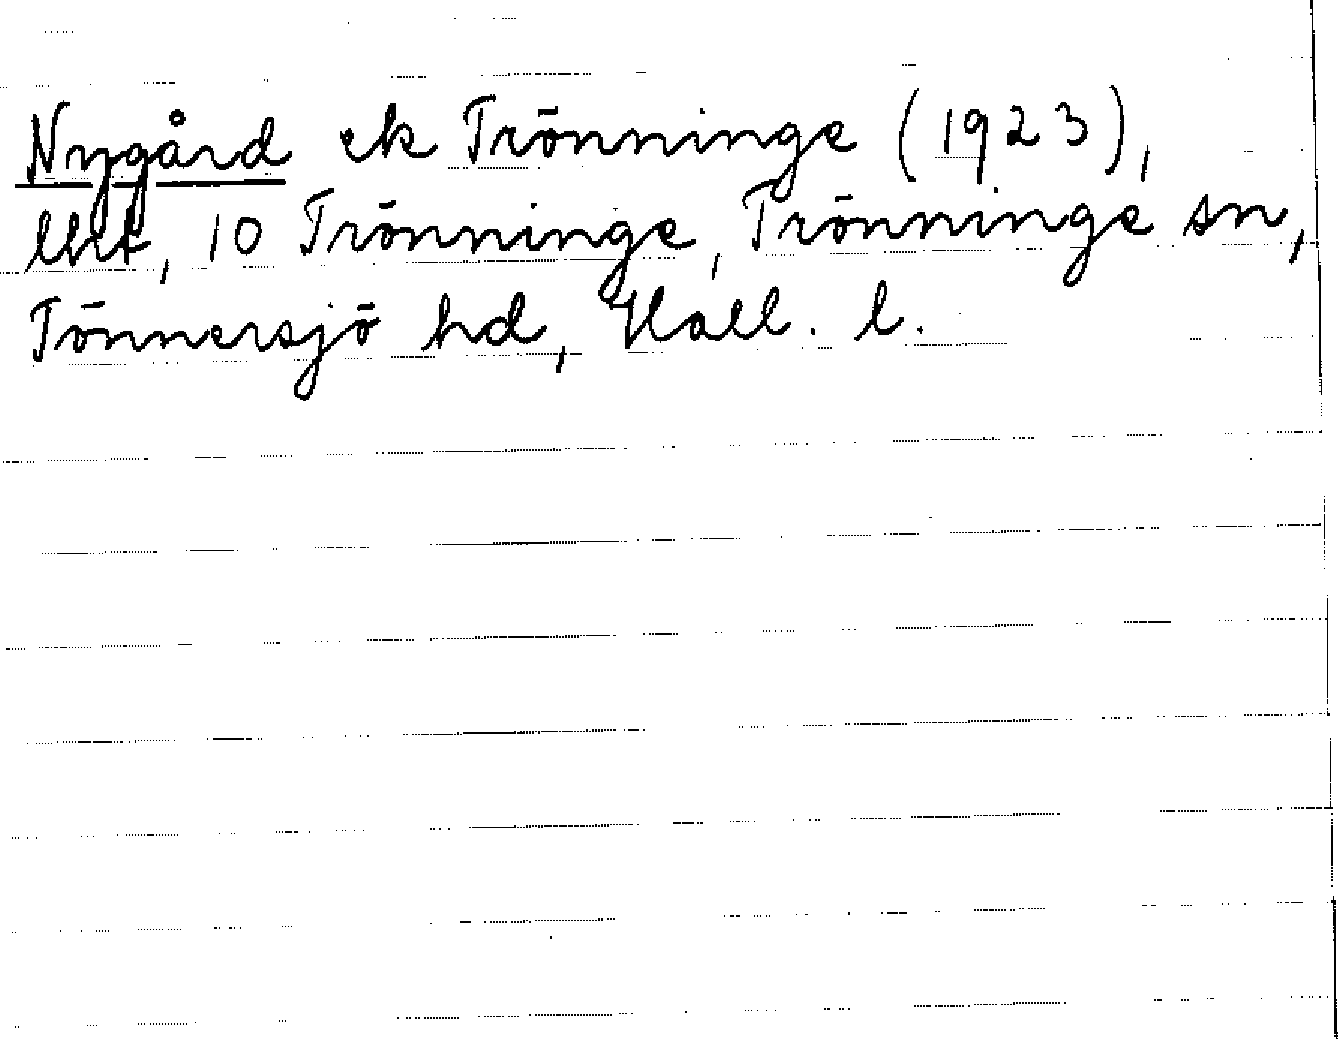 Nygård ek Trönninge (1923),
lht, 10 Trönninge, Trönninge sn,
Tönnersjö hd, Hall. l.